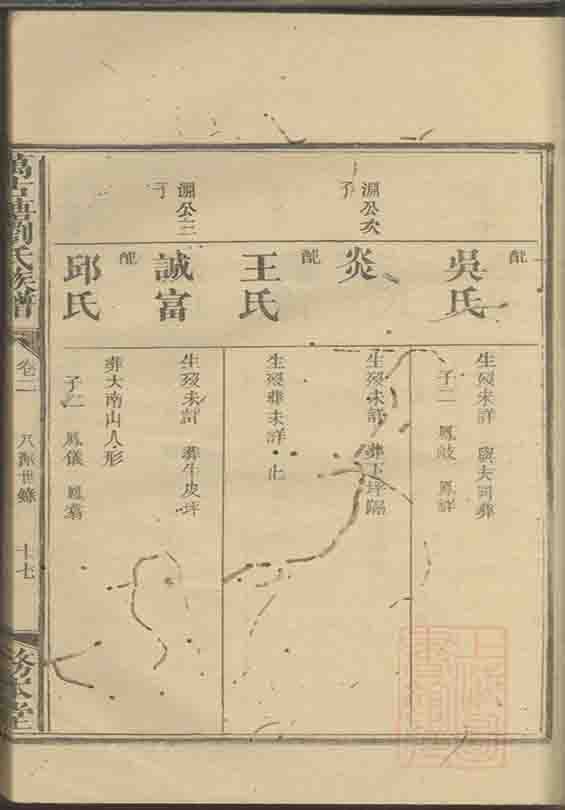 配
吳氏
生歿未詳 與夫同葬
子二 鳳岐 鳳詳
淵公次
子
炎
生歿未詳 葬下坪
配
王氏
生歿葬未詳 止
淵公三
子
誠富
生歿未詳 葬牛皮坪
葬大南山人形
配
邱氏
子二 鳳儀 鳳翥
萬古塘劉氏族譜
卷二
世錄
十七
務本堂